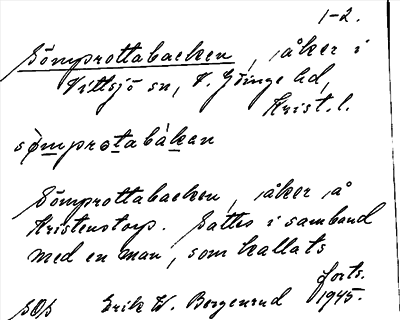 1-2.
Sömprottabacken, åker i
Vittsjö sn, V. Göinge hd,
Krist. l.
sømprotabàkan
Sömprottabacken, åker å
Kristenstorp. Sattes i samband
med en man, som kallats
forts.
SOS Erik W. Borgenrud 1945.